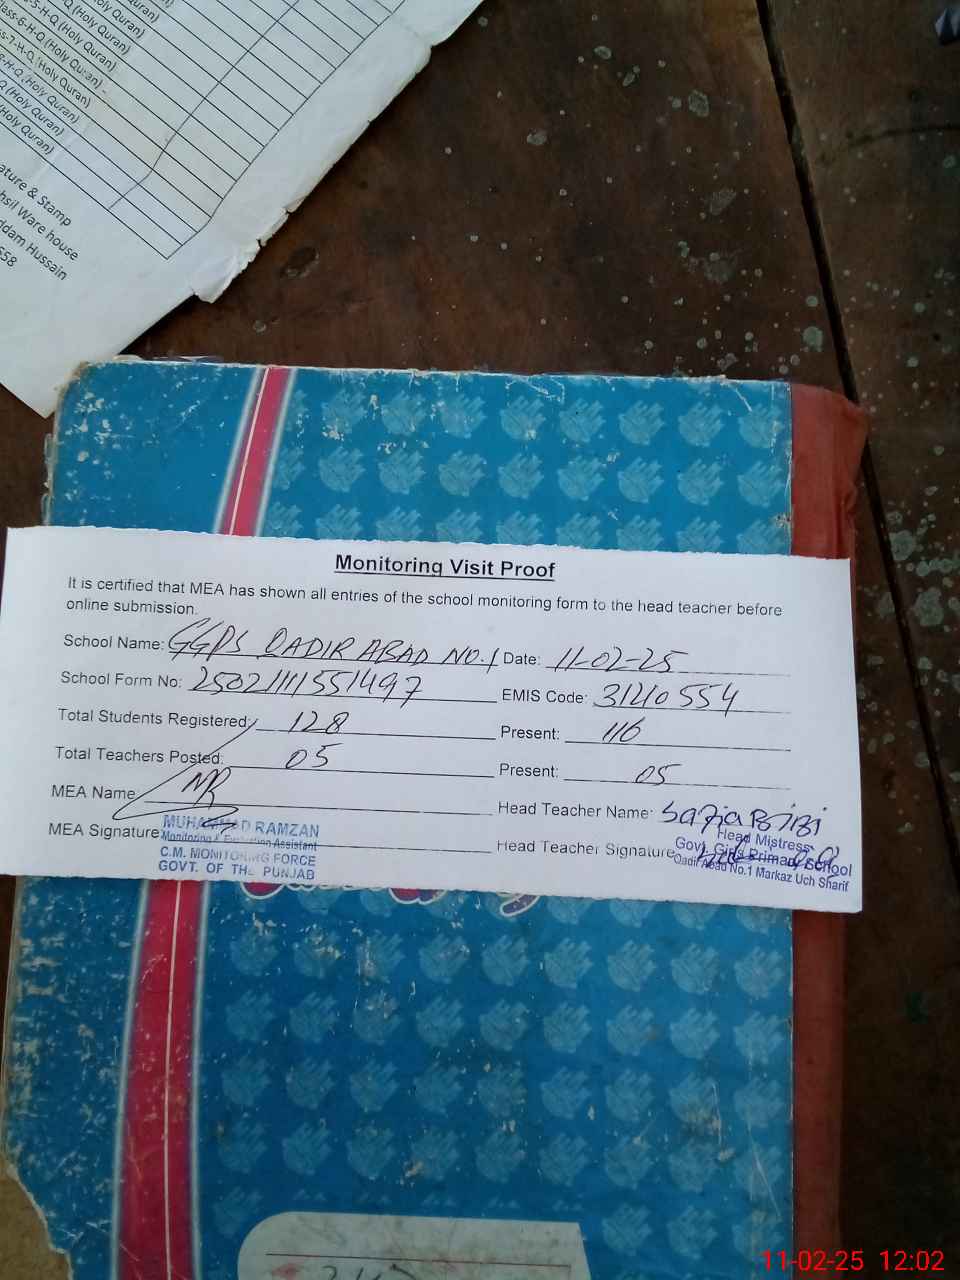 oly Quran)
(Holy Quran)
-5-H-Q (Holy Quran)
lass-6-H-Q (Holy Quran)
s-7-H-Q (Holy Quran)
-H-Q (Holy Quran)
Q (Holy Quran)
(Holy Quran)
ature & Stamp
hsil Ware house
ddam Hussain
558
Monitoring Visit Proof
It is certified that MEA has shown all entries of the school monitoring form to the head teacher before
online submission.
School Name: GGPS QADIR ABAD NO.1 Date: 11-02-25
School Form No: 25021111551497 EMIS Code: 31240554
Total Students Registered: 128 Present: 116
Total Teachers Posted: 05 Present: 05
MEA Name: MR Head Teacher Name: Safia BiBi
MEA Signature: Head Teacher Signature
MUHAMMAD RAMZAN
Monitoring & Evaluation Assistant
C.M. MONITORING FORCE
GOVT. OF THE PUNJAB
Head Mistress
Govt. Girls Primary School
Qadir Abad No.1 Markaz Uch Sharif
11-02-25 12:02